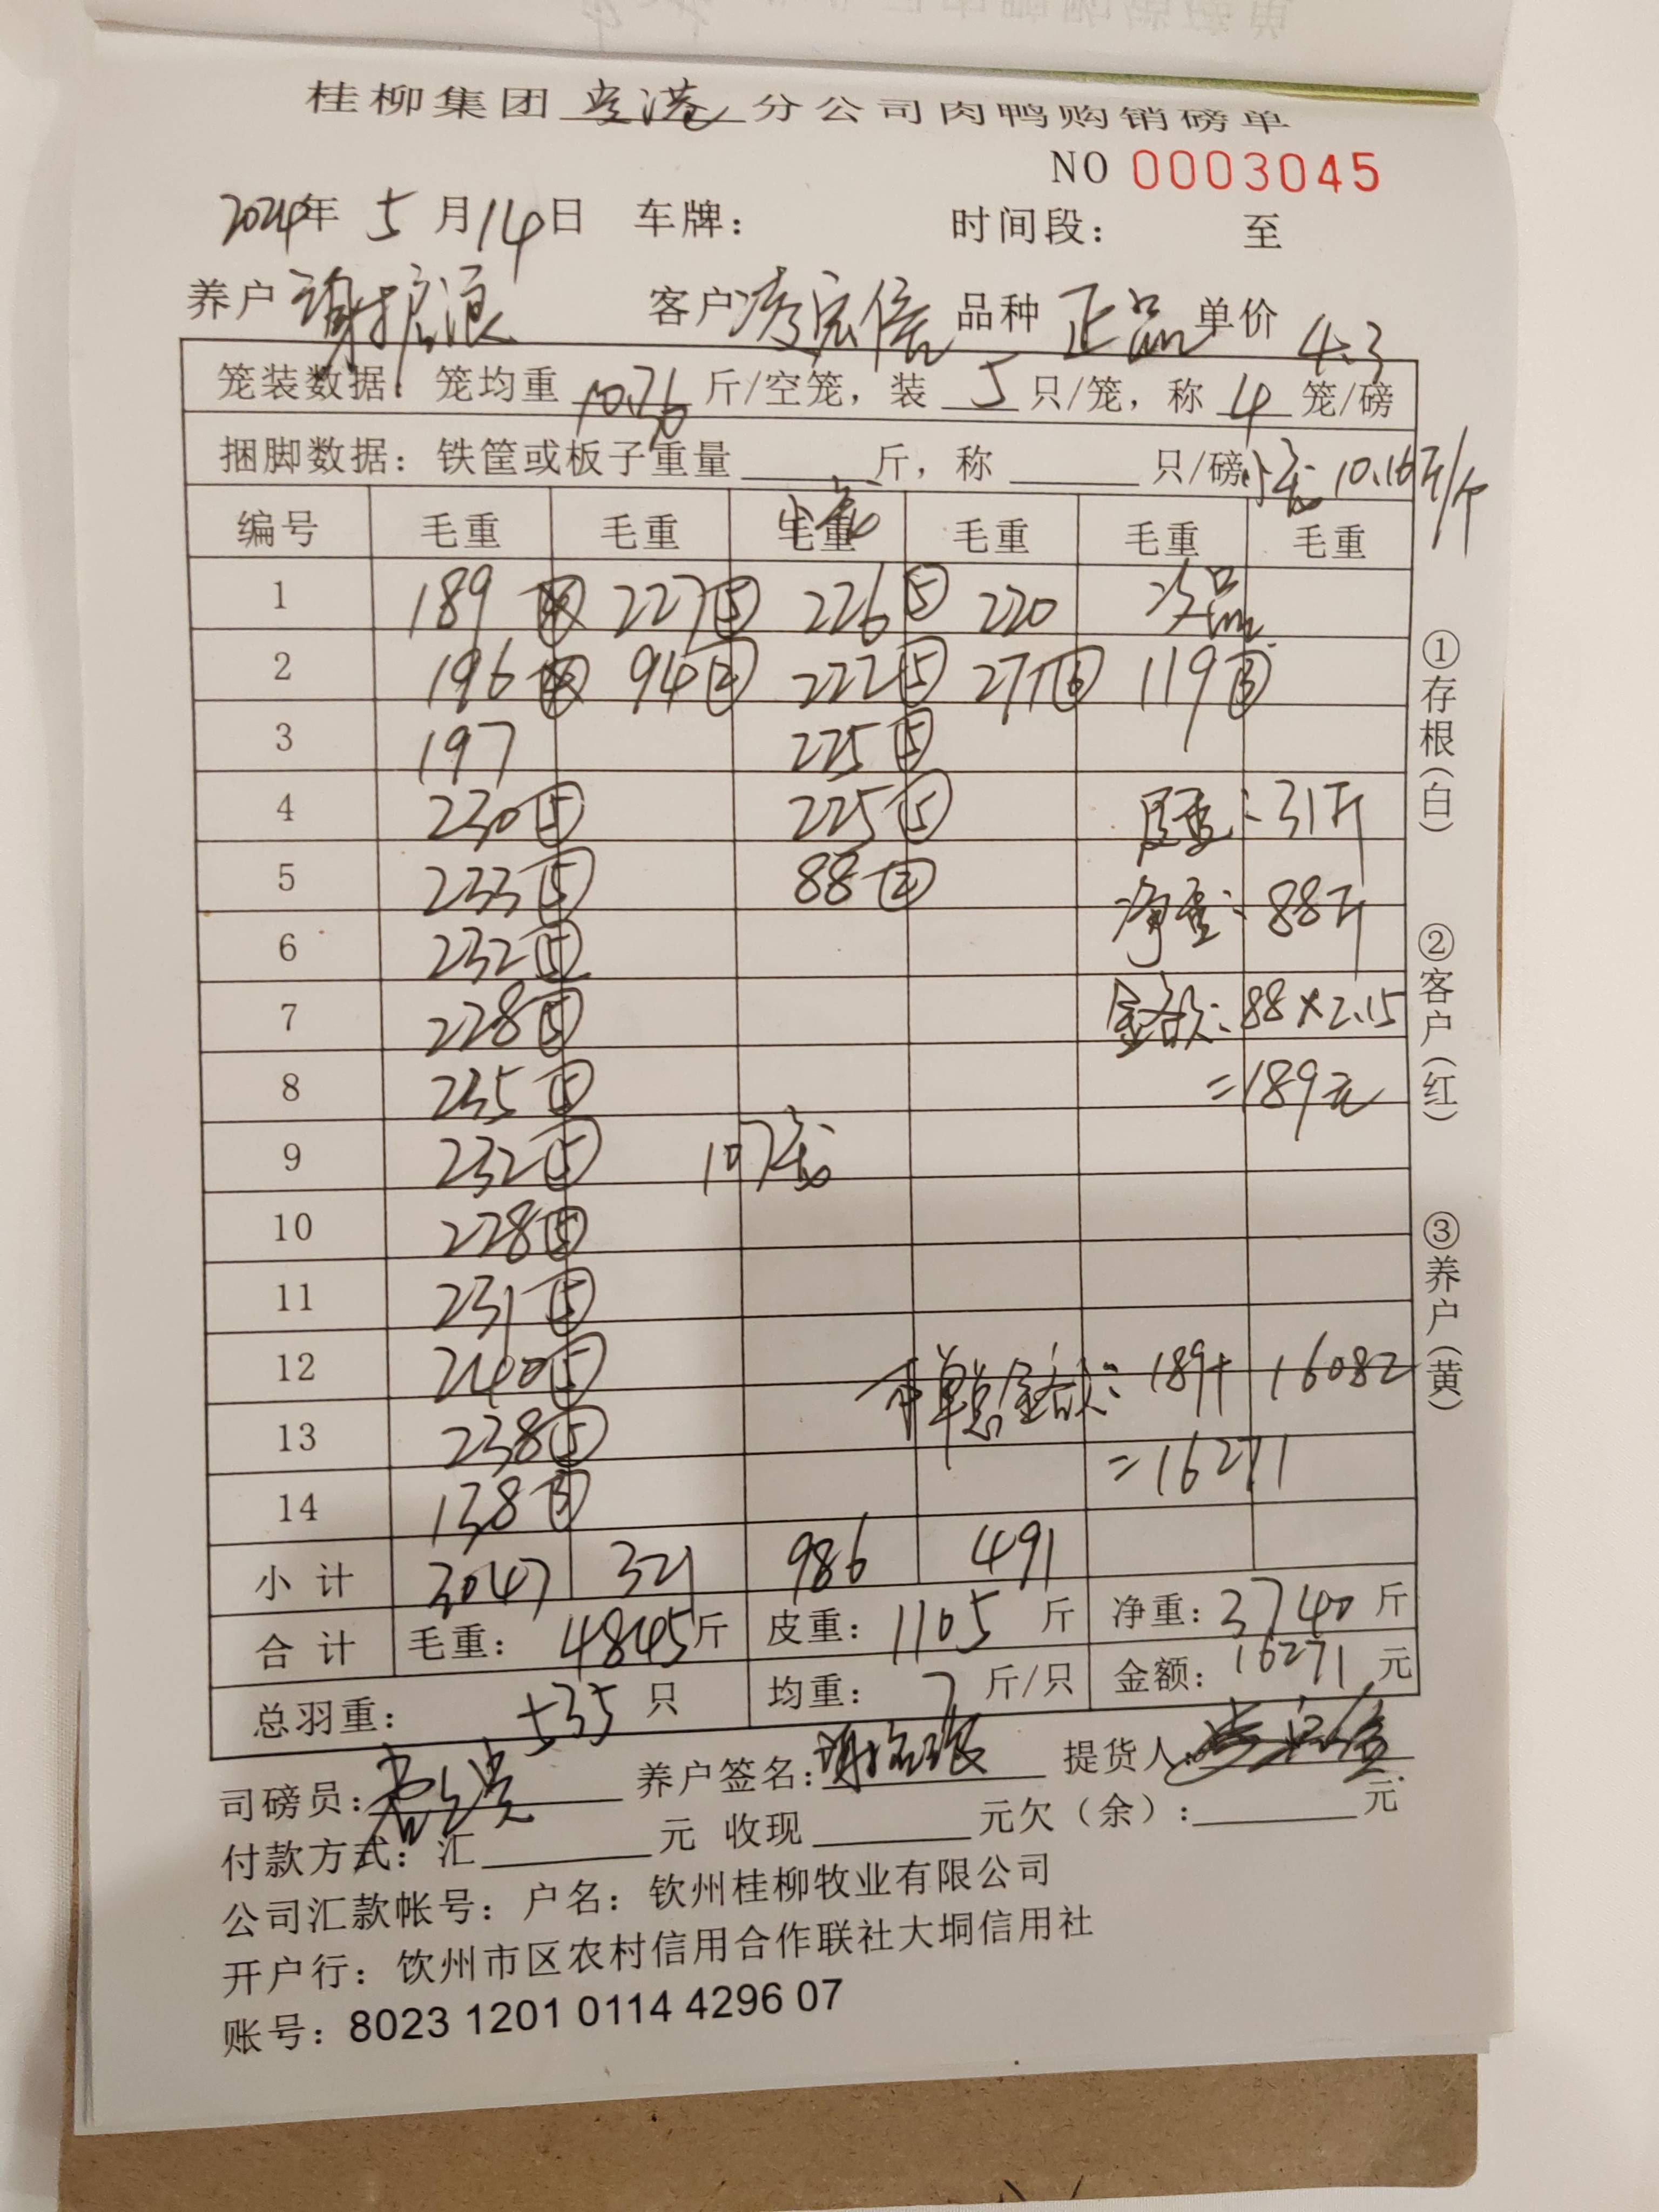 桂柳集团 贵港 分公司肉鸭购销磅单
NO 0003045
2024年 5 月 14 日 车牌： 时间段： 至
养户 谢振浪 客户 凌宏信 品种 正品 单价 4.3
笼装数据：笼均重 10.36 斤/空笼，装 5 只/笼，称 4 笼/磅
捆脚数据：铁筐或板子重量 斤，称 只/磅 小笼 10.16斤/个
编号 毛重 毛重 毛重 小笼 毛重 毛重 毛重
1 189 ④ 227 ⑤ 226 ⑤ 220 次品
2 196 ④ 94 ② 222 ⑤ 271 ⑥ 119 ③
3 197 225 ⑤
4 230 ⑤ 225 ⑤ 皮重：31斤
5 233 ⑤ 88 ② 净重：88斤
6 232 ⑤
7 228 ⑤ 金额：88×2.15
8 235 ⑤ =189元
9 232 ⑤ 107笼
10 228 ⑤
11 231 ⑤
12 240 ⑤ 本单总金额：189+16082
13 238 ⑤ =16271
14 138 ③
小计 3047 321 986 491
合计 毛重： 4845 斤 皮重： 1105 斤 净重： 3740 斤
总羽重： 535 只 均重： 7 斤/只 金额： 16271 元
司磅员： 养户签名： 提货人：
付款方式：汇 元 收现 元欠（余）： 元
公司汇款帐号：户名：钦州桂柳牧业有限公司
开户行：钦州市区农村信用合作联社大垌信用社
账号：8023 1201 0114 4296 07
①存根（白）
②客户（红）
③养户（黄）